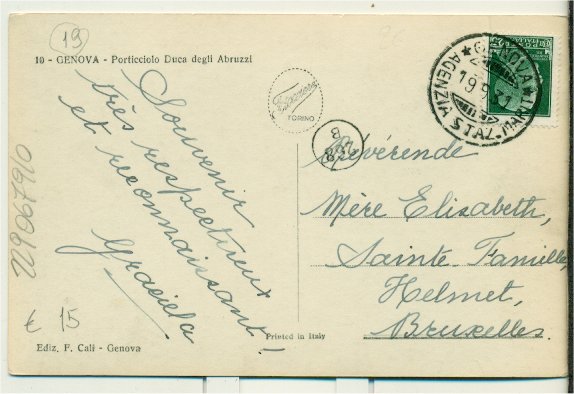 19
10 - GENOVA - Porticciolo Duca degli Abruzzi
Souvenir
très respectueux
et reconnaissant!
Graciela
TORINO
268
B
GENOVA
19.9.31
AGENZIA STAZ. MARIT
Révérende
Mère Elisabeth,
Sainte Famille,
Helmet,
Bruxelles.
22906790
€ 15
Ediz. F. Cali - Genova
Printed in Italy